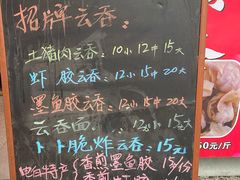 招牌云吞:
土猪肉云吞:10小 12中 15大
虾胶云吞:12小 15中 20大
墨鱼胶云吞:12小 15中 20大
云吞面: 12小 15大
卜卜脆炸云吞:15元
特产 香煎墨鱼胶 15/份
香煎
50元/斤